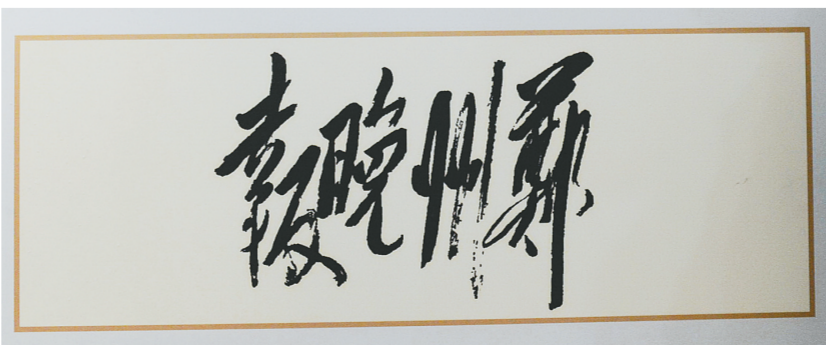 鄭州晚報